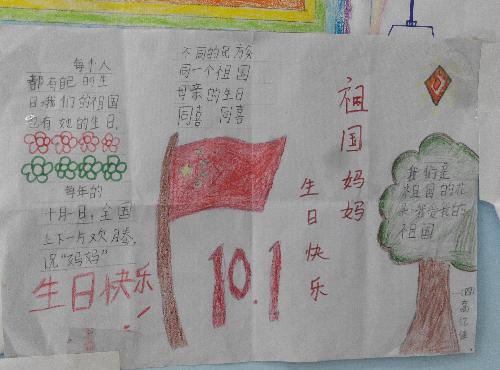 每个人
都有自己的生
日，我们的祖国
也有她的生日。
每年的
十月一日，全国
上下一片欢腾，
说“妈妈”
生日快乐！
不同的民族
同一个祖国
母亲的生日
同喜 同喜
10.1
祖国妈妈
生日快乐
我们是
祖国的花
朵我爱我的
祖国